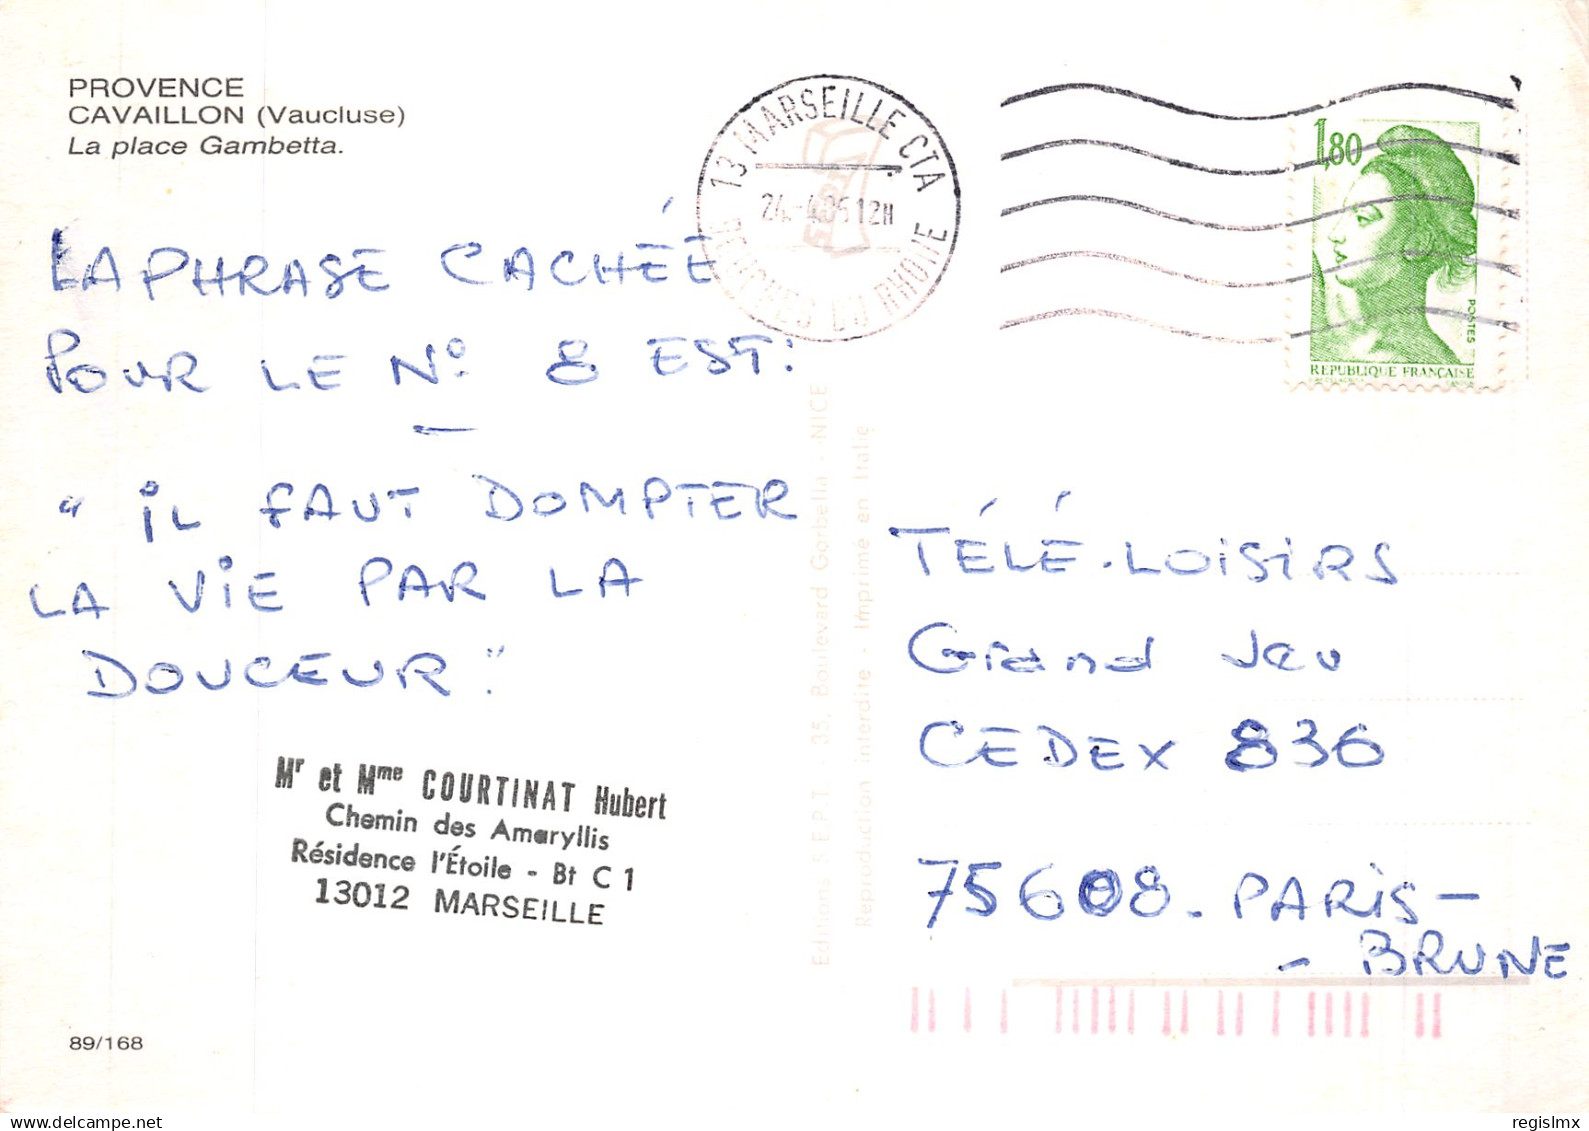 PROVENCE
CAVAILLON (Vaucluse)
La place Gambetta.
LA PHRASE CACHÉÉ
POUR LE N° 8 EST:
" IL FAUT DOMPTER
LA VIE PAR LA
DOUCEUR."
Mr et Mme COURTINAT Hubert
Chemin des Amaryllis
Résidence l'Étoile - Bt C 1
13012 MARSEILLE
89/168
Editions S.E.P.T. 35, Boulevard Gorbella - NICE
Reproduction interdite - Imprimé en Italie
13 MARSEILLE CTA
12H
DU RHONE
1,80
POSTES
REPUBLIQUE FRANÇAISE
TÉLÉ.LOISIRS
Grand Jeu
CEDEX 836
75608. PARIS -
- BRUNE
regislmx